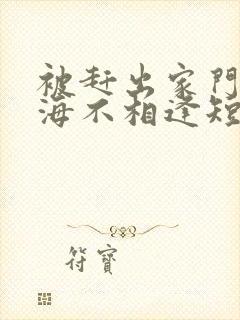 被赶出家門
海不相逢短
符寶